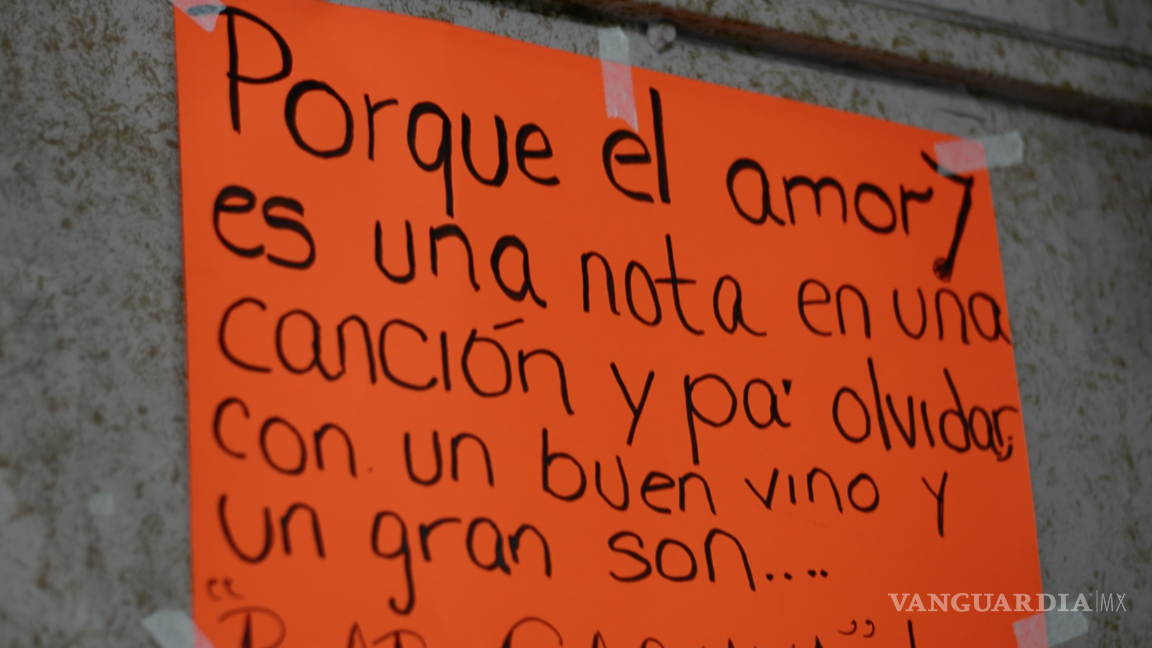 Porque el amor?
es una nota en una
canción y pa' olvidar,
con un buen vino y
un gran son....
VANGUARDIA|MX